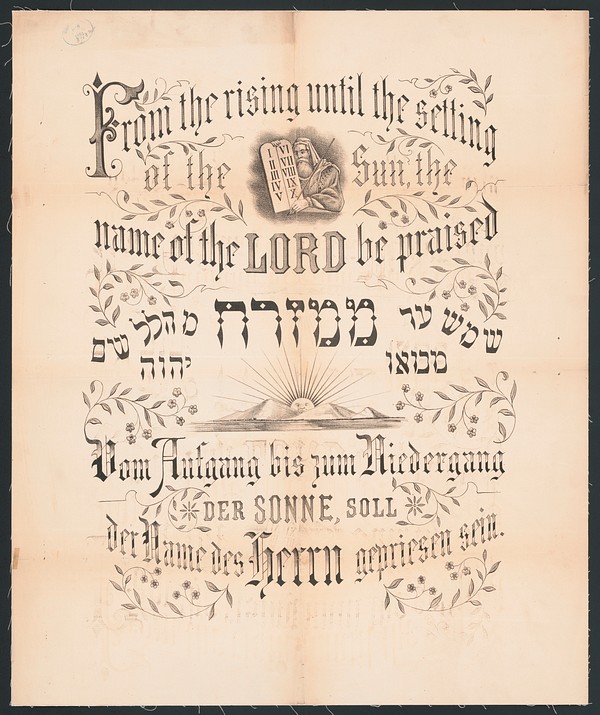 From the rising until the setting
of the Sun, the
I VI
II VII
III VIII
IV IX
V X
name of the LORD be praised
שמש עד ממזרח מהלל שם
מבואו יהוה
Vom Aufgang bis zum Niedergang
DER SONNE, SOLL
der Name des Herrn gepriesen sein.